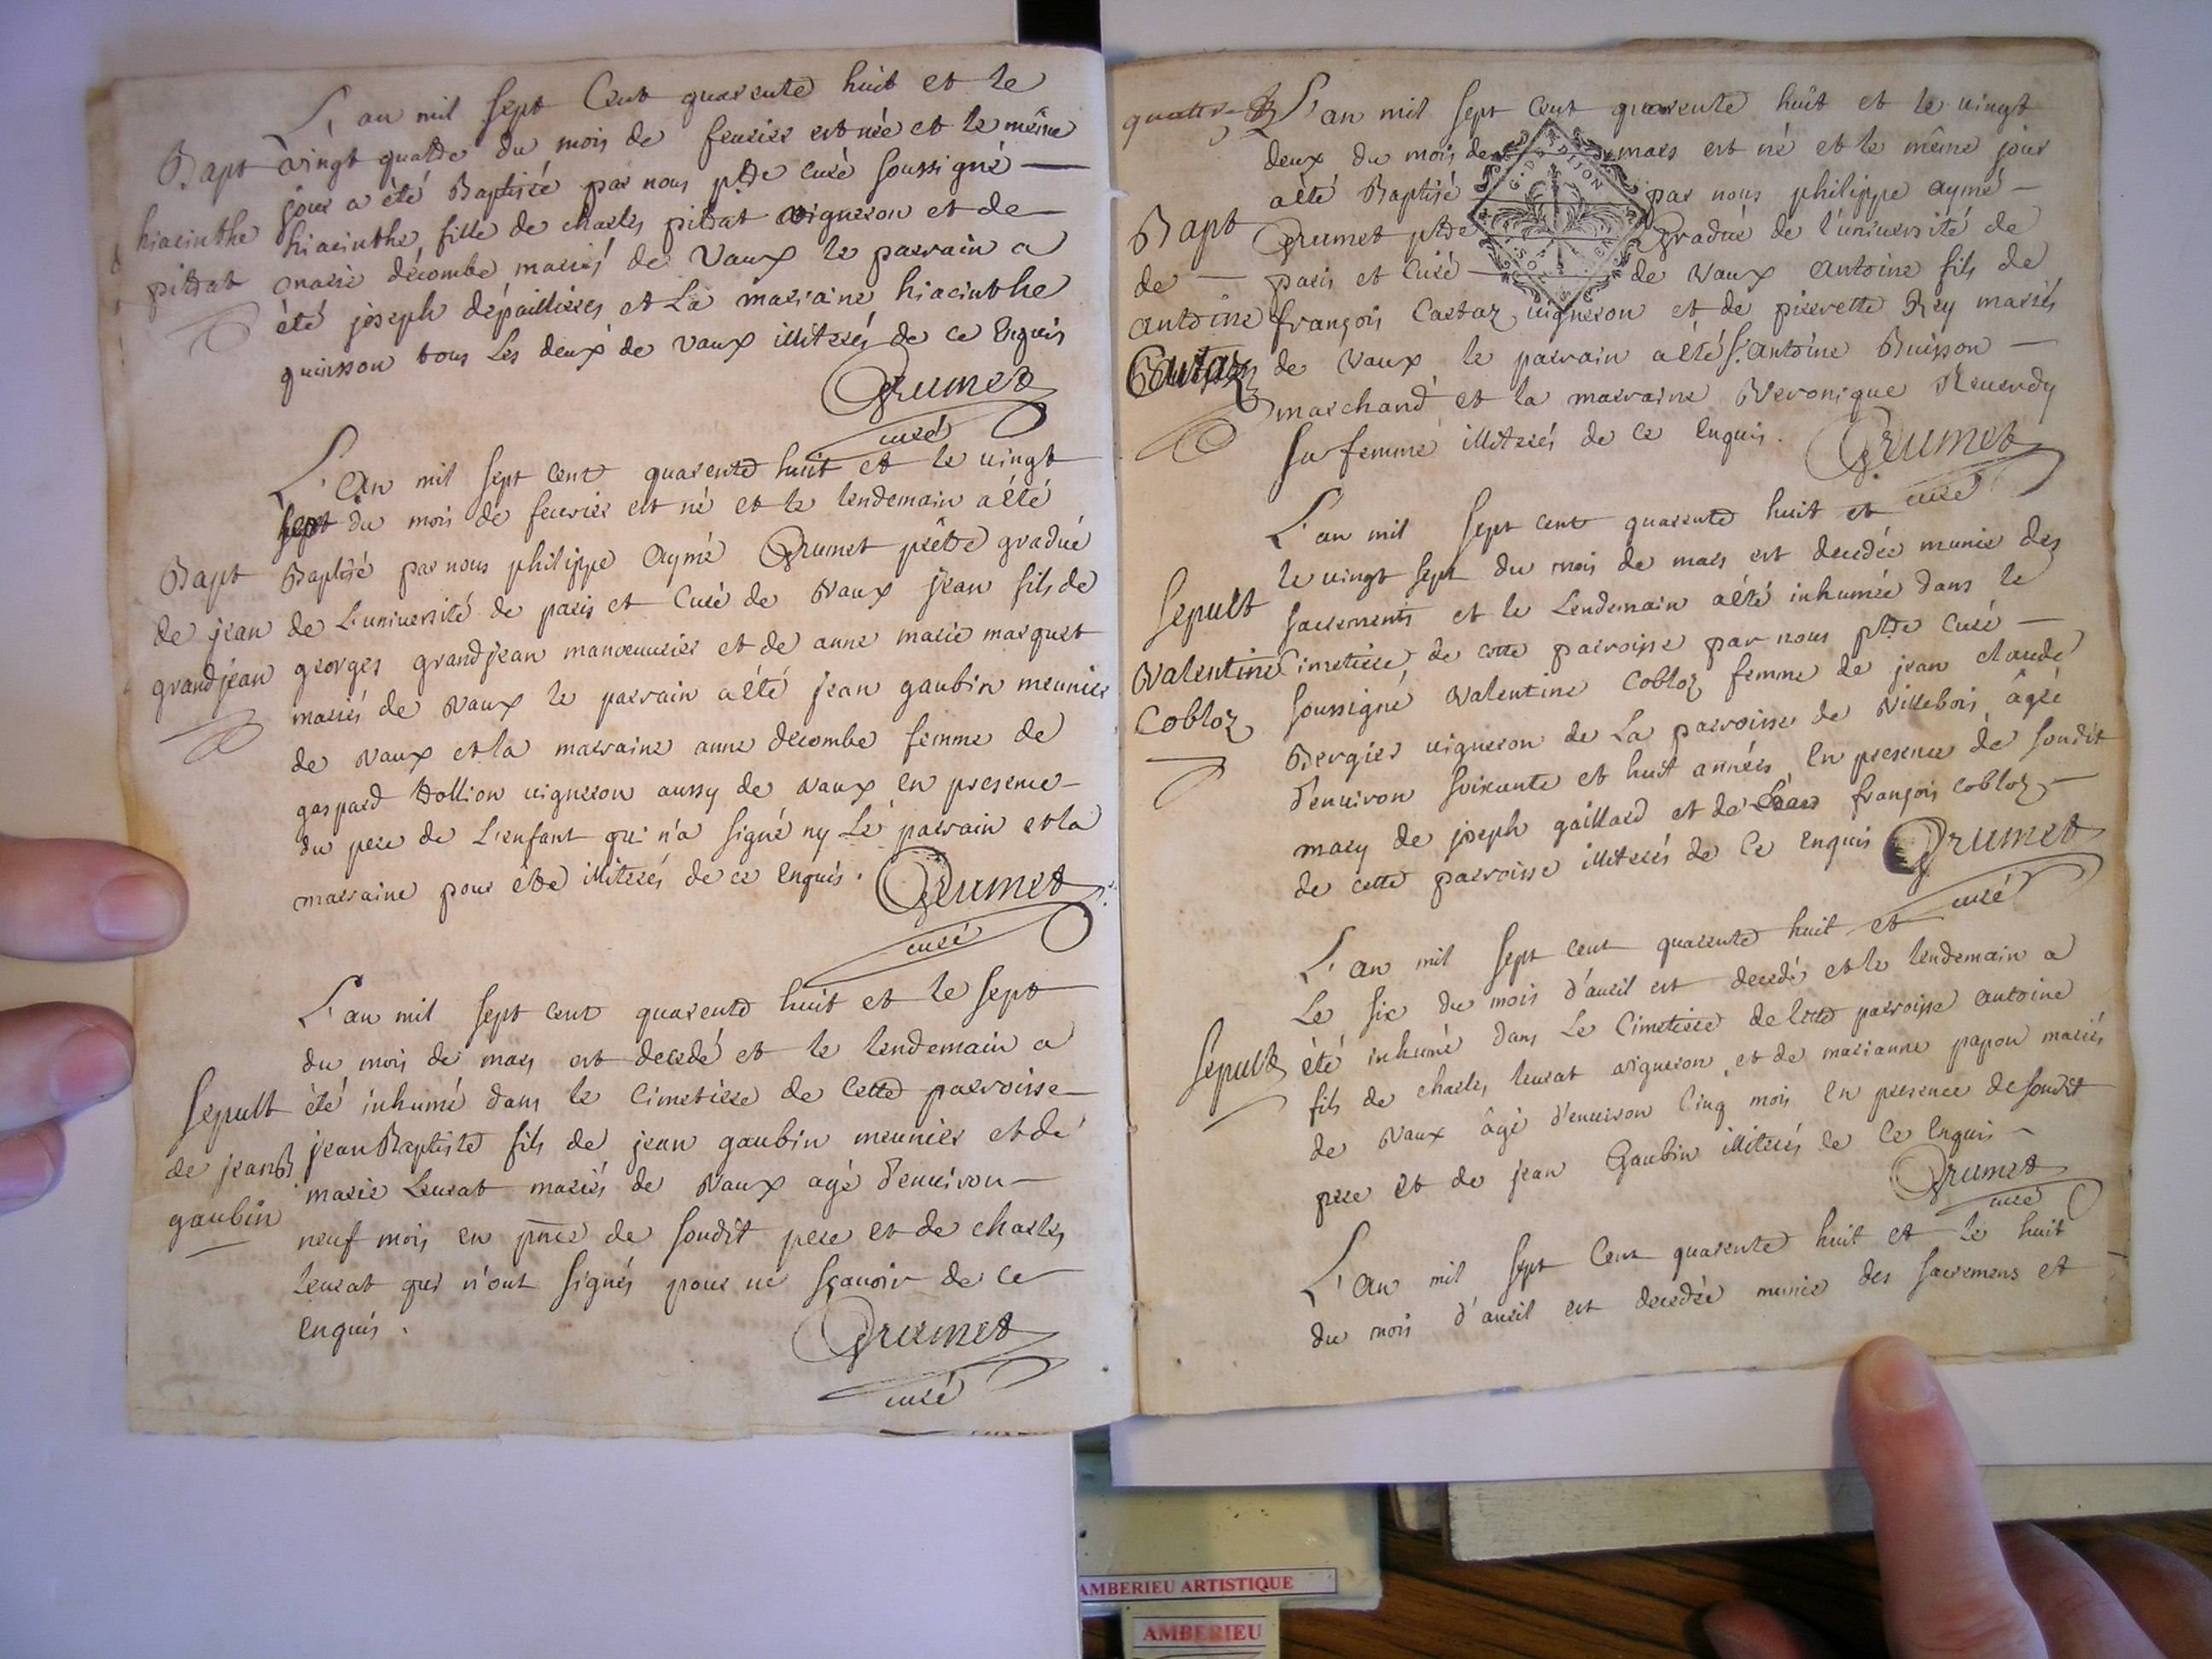 L'an mil sept Cent quarente huit et le
vingt quatre du mois de feurier est née et le même
jour a èté Baptisée par nous ptre curé soussigné
hiacinthe fille de charles pitrat vigneron et de
marie décombe mariés de Vaux le parrain a
été joseph dépaillieres et La marraine hiacinthe
quinson tous Les deux de vaux illiterés de ce Enquis
Brumet
curé
Bapt
hiacinthe
pitrat
L'An mil sept Cent quarente huit et le vingt
sept du mois de feurier est né et le lendemain a été
Baptisé par nous philippe Aymé Brumet prêtre gradué
de L'université de paris et Curé de Vaux jean fils de
georges grandjean manoeuurier et de anne marie marquet
mariés de Vaux le parrain a été jean gaubin meunier
de vaux et la marraine anne décombe femme de
gaspard Dollion uigneron aussy de vaux en presence
du pere de L'enfant qui n'a signé ny Le parrain et la
marraine pour être illiterés de ce Enquis.
Brumet
curé
Bapt
de jean
grandjean
L'an mil sept cent quarente huit et le sept
du mois de mars est decedé et le lendemain a
été inhumé dans le Cimetiere de Cette parroisse
jean Baptiste fils de jean gaubin meunier et de
marie Leurat mariés de Vaux agé d'enuiron
neuf mois en pnce de soudit pere et de charles
leurat qui n'ont signés pour ne sçauoir de ce
Enquis.
Brumet
curé
Sepult
de jean B
gaubin
quatre
L'an mil sept cent quarente huit et le uingt
deux du mois de mars est né et le même jour
a été Baptisé par nous philippe aymé
Brumet ptre gradué de l'université de
paris et Curé de Vaux Antoine fils de
françois Cartaz uigneron et de pierrette Rey mariés
de Vaux le parrain a été Sr. Antoine Buisson
marchand et la marraine Veronique Reuerdy
sa femme illiterés de ce Enquis.
Brumet
curé
G.D. DIJON
Bapt
de
antoine
Cartaz
L'an mil sept cent quarente huit et
le uingt sept du mois de mars est decedée munie des
sacrements et le Lendemain a été inhumée dans le
Cimetiere de cette parroisse par nous ptre Curé
soussigné Valentine Cobloz femme de jean claude
Bergier uigneron de La parroisse de Villebois âgée
d'enuiron soixante et huit années en presence de soudit
mary de joseph gaillard et de françois cobloz
de cette parroisse illiterés de Ce Enquis
Brumet
curé
Sepult
Valentine
Cobloz
L'an mil sept cent quarente huit et
Le six du mois d'auril est decedé et le lendemain a
été inhumé dans Le Cimetiere de Cette parroisse antoine
fils de charles leurat vigneron et de marianne papon mariés
de Vaux âgé d'enuiron Cinq mois en presence de soudit
pere et de jean Gaubin illiterés de Ce Enquis
Brumet
curé
Sepult
L'an mil sept Cent quarente huit et le huit
du mois d'auril est decedée munie des sacremens et
AMBERIEU ARTISTIQUE
AMBERIEU